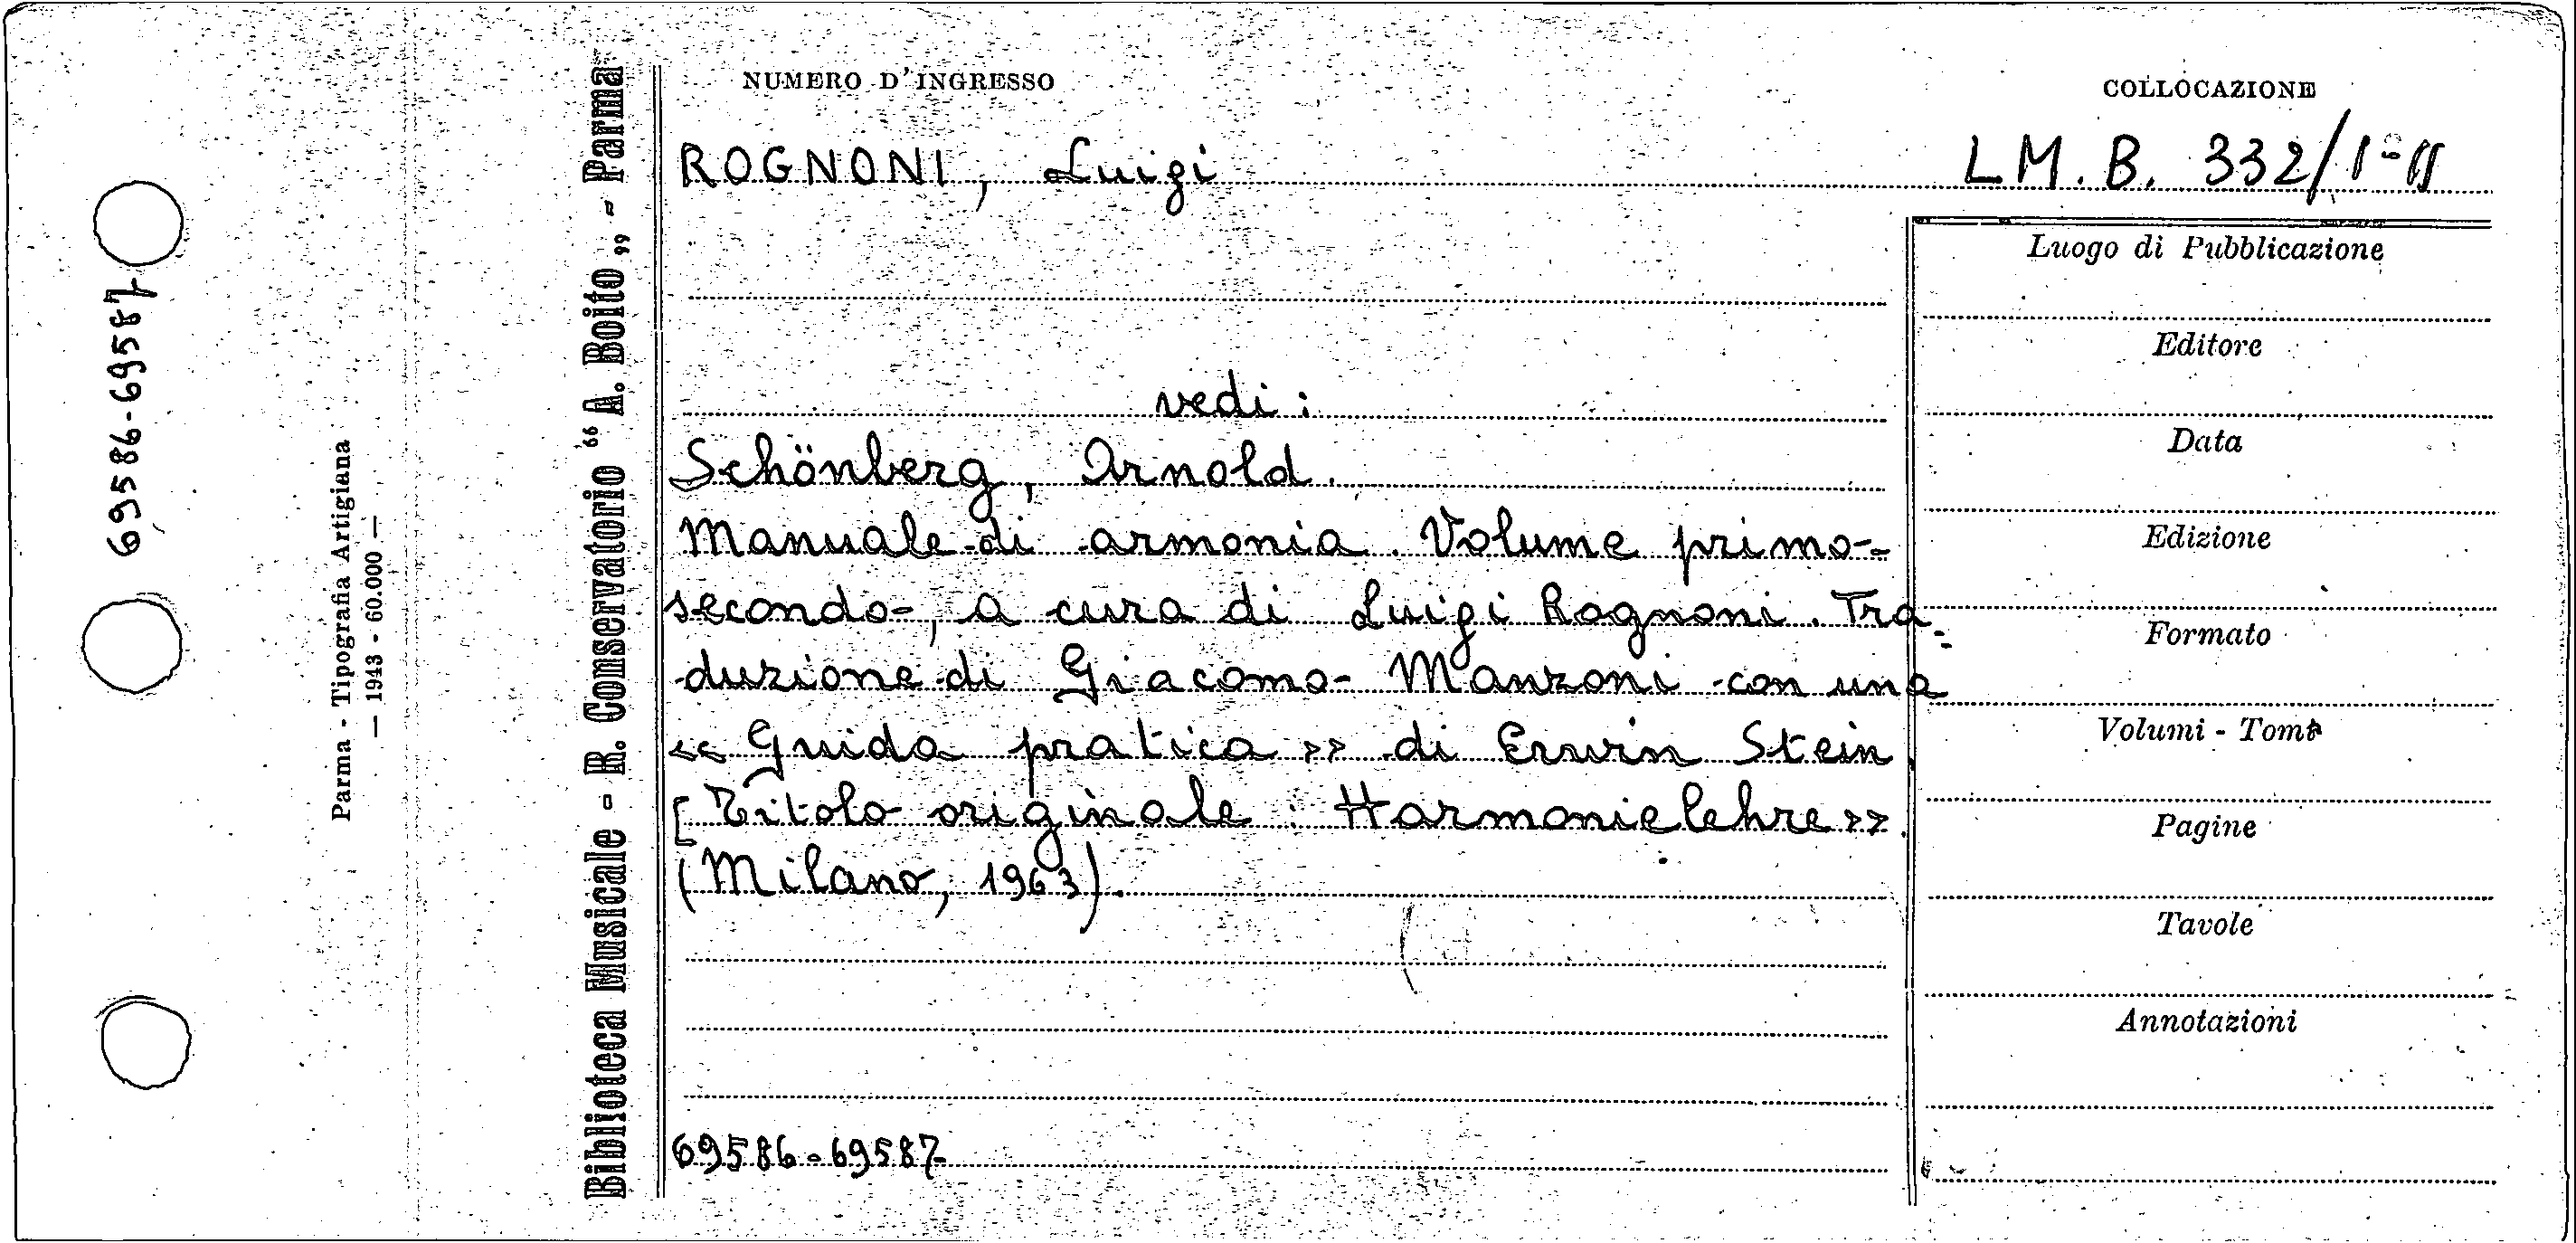 69586-69587
Parma - Tipografia Artigiana
— 1943 - 60.000 —
Biblioteca Musicale - R. Conservatorio “ A. Boito „ - Parma
NUMERO D'INGRESSO
COLLOCAZIONE
ROGNONI, Luigi
L.M.B. 332/I-II
vedi:
Schönberg, Arnold.
Manuale di armonia. Volume primo-
secondo, a cura di Luigi Rognoni. Tra-
duzione di Giacomo Manzoni con una
<< Guida pratica >> di Erwin Stein.
[Titolo originale: Harmonielehre>>.
(Milano, 1963).
69586-69587
Luogo di Pubblicazione
Editore
Data
Edizione
Formato
Volumi - Tomi
Pagine
Tavole
Annotazioni